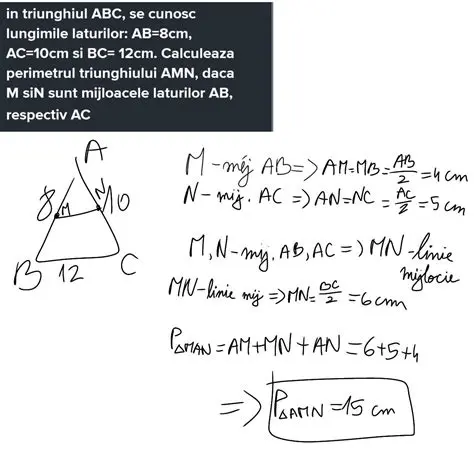 in triunghiul ABC, se cunosc
lungimile laturilor: AB=8cm,
AC=10cm si BC= 12cm. Calculeaza
perimetrul triunghiului AMN, daca
M siN sunt mijloacele laturilor AB,
respectiv AC
A
8 M N 10
B 12 C
M-mij AB=>AM=MB=AB/2=4cm
N-mij. AC=>AN=NC=AC/2=5cm
M,N-mij. AB,AC=>MN-linie
mijlocie
MN-linie mij=>MN=BC/2=6cm
P△MAN=AM+MN+AN=6+5+4
=> P△AMN=15 cm